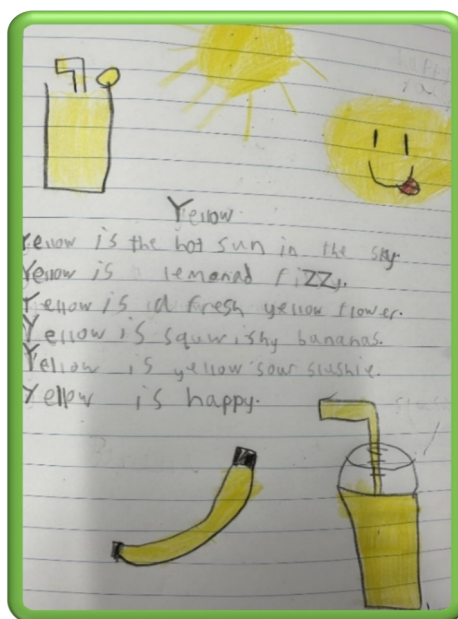 Yellow
Yellow is the hot sun in the sky.
Yellow is lemonad fizzy.
Yellow is a fresh yellow flower.
Yellow is squwishy bananas.
Yellow is yellow sour slushie.
Yellow is happy.